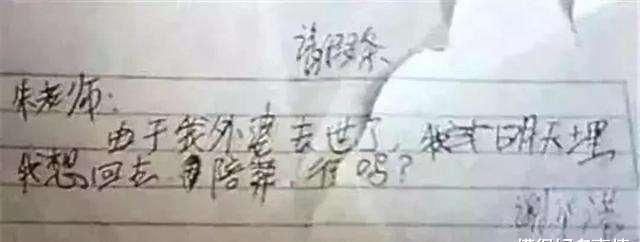 请假条
朱老师:
由于我外婆去世了,我才明天埋
我想回去陪葬,行吗?